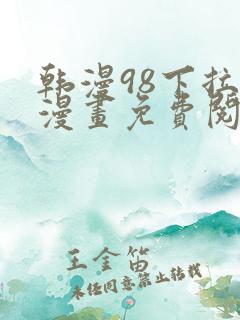 韩漫98下拉
漫畫免費閱
王金笛
未经同意禁止转载